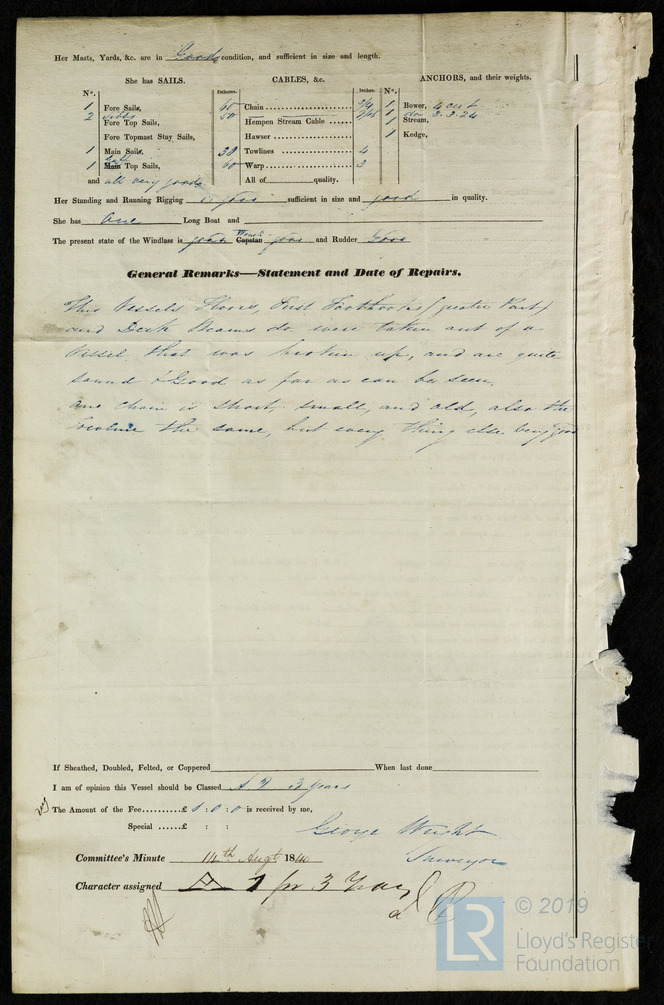 Her Masts, Yards, &c. are in Good condition, and sufficient in size and length.
She has SAILS.
CABLES, &c.
ANCHORS, and their weights.
N°.
Fathoms.
Inches.
N°.
1 Fore Sails, 60 Chain 3/4 1 Bower, 4 cwt
2 Fore Top Sails, 50 Hempen Stream Cable 1 Stream, 3.3.24
Fore Topmast Stay Sails, Hawser 1 Kedge,
1 Main Sails, 30 Towlines 4
1 Main Top Sails, 60 Warp 3
and all very good All of quality.
Her Standing and Running Rigging is good sufficient in size and good in quality.
She has One Long Boat and
The present state of the Windlass is good Capstan Winch good and Rudder Good
General Remarks—Statement and Date of Repairs.
This Vessels Floors, First Foothooks (greater Part)
and Deck Beams do were taken out of a
Vessel that was broken up, and are quite
sound & Good as far as can be seen,
one chain is short, small, and old, also the
the same, but every thing else very good
If Sheathed, Doubled, Felted, or Coppered When last done
I am of opinion this Vessel should be Classed 3 years
The Amount of the Fee £ 1 : 0 : 0 is received by me,
Special £ : :
George Wright
Surveyor
Committee's Minute 14th Augt 1840
Character assigned A 1 for 3 Years
LR
© 2019
Lloyd's Register
Foundation